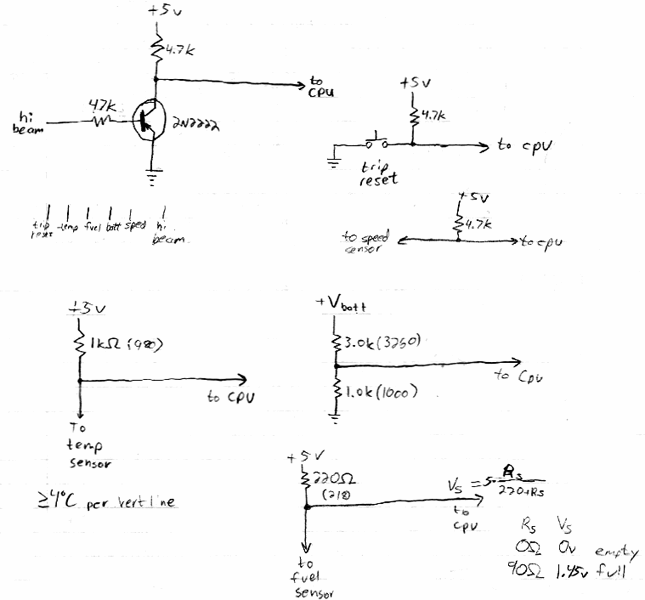 +5v
4.7k
to
CPU
47k
hi
beam
2N2222
+5v
4.7k
to cpu
trip
reset
+5v
4.7k
to speed
sensor
to cpu
trip
reset
temp
fuel
batt
speed
hi
beam
+5v
1kΩ (980)
to CPU
To
temp
sensor
≥4°C per vert line
+Vbatt
3.0k (3260)
to CPU
1.0k (1000)
+5v
220Ω
(218)
Vs = 5·Rs/220+Rs
to
CPU
to
fuel
sensor
Rs Vs
0Ω 0v empty
90Ω 1.45v full